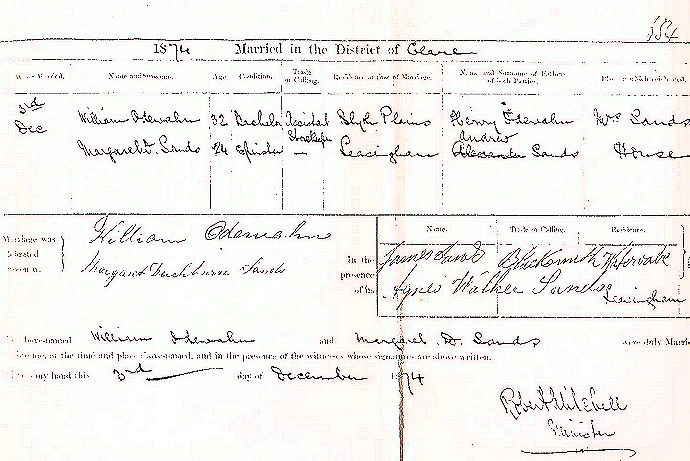 184
1874 Married in the District of Clare
Married. Name and Surname. Age Condition. Trade or Calling. Residence at time of Marriage. Name and Surname of Fathers of both Parties. Place in which
3rd Dec William Odewahn 32 Bachelor Blyth Plains Henry Odewahn Mrs Sands
Andrew
Margaret Sands 24 Spinster — Leasingham Alexander Sands House
William Odewahn
Margaret Duchburn Sands
Marriage was
In the presence of us,
Name. Trade or Calling. Residence.
James Sands Blacksmith Watervale
Agnes Walker Sands Leasingham
above-named William Odewahn and Margaret D. Sands were duly Married
at the time and place above-named, and in the presence of the witnesses whose signatures are above written.
my hand this 3rd day of December 1874
Robert Mitchell
Minister